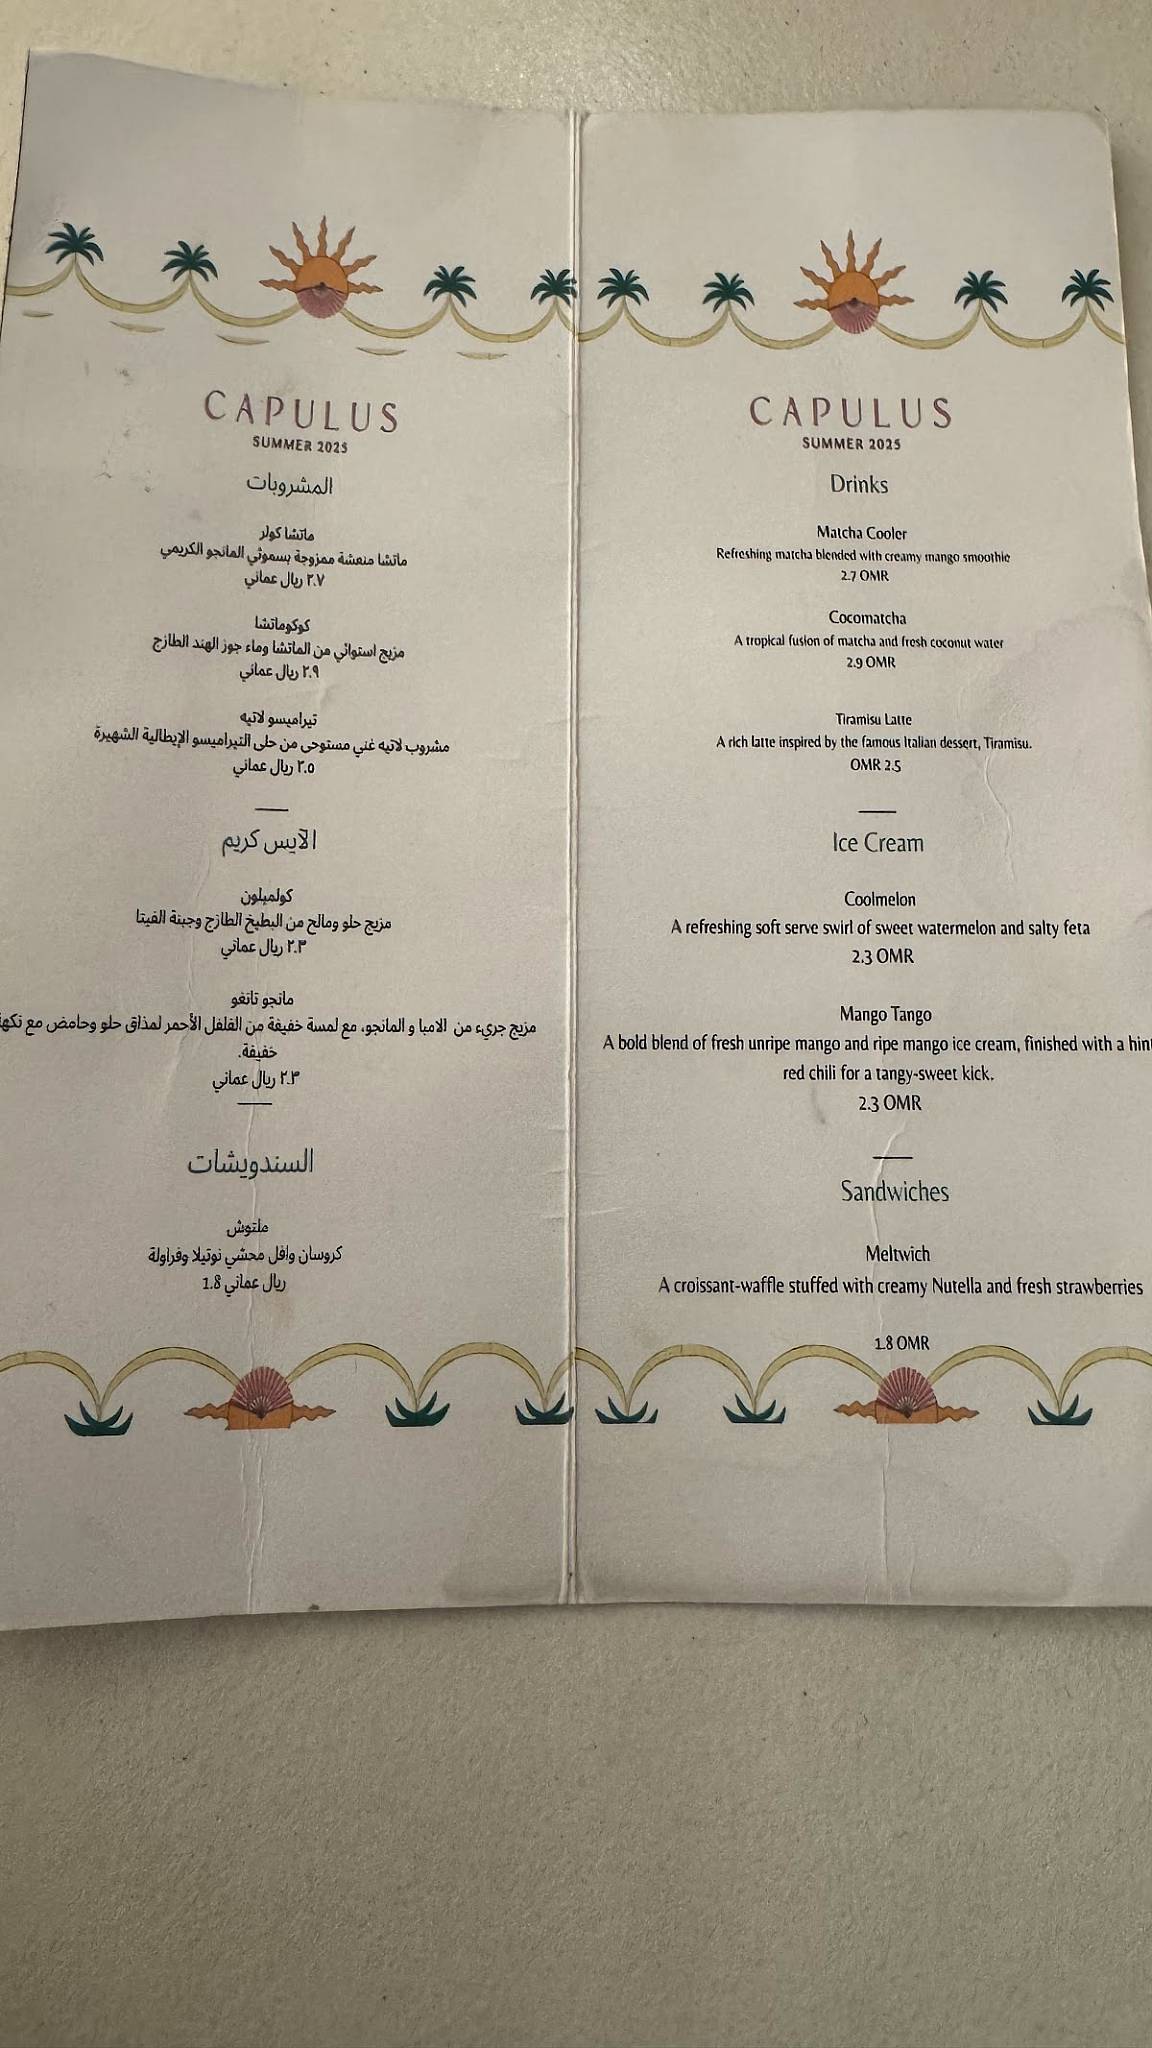 CAPULUS
SUMMER 2025
المشروبات
ماتشا كولر
ماتشا منعشة ممزوجة بسموثي المانجو الكريمي
٢.٧ ريال عماني
كوكوماتشا
مزيج استوائي من الماتشا وماء جوز الهند الطازج
٢.٩ ريال عماني
تيراميسو لاتيه
مشروب لاتيه غني مستوحى من حلى التيراميسو الإيطالية الشهيرة
٢.٥ ريال عماني
الآيس كريم
كولميلون
مزيج حلو ومالح من البطيخ الطازج وجبنة الفيتا
٢.٣ ريال عماني
مانجو تانغو
مزيج جريء من الامبا و المانجو، مع لمسة خفيفة من الفلفل الأحمر لمذاق حلو وحامض مع نكهة
خفيفة.
٢.٣ ريال عماني
السندويشات
ملتوش
كروسان وافل محشي نوتيلا وفراولة
ريال عماني 1.8
CAPULUS
SUMMER 2025
Drinks
Matcha Cooler
Refreshing matcha blended with creamy mango smoothie
2.7 OMR
Cocomatcha
A tropical fusion of matcha and fresh coconut water
2.9 OMR
Tiramisu Latte
A rich latte inspired by the famous Italian dessert, Tiramisu.
OMR 2.5
Ice Cream
Coolmelon
A refreshing soft serve swirl of sweet watermelon and salty feta
2.3 OMR
Mango Tango
A bold blend of fresh unripe mango and ripe mango ice cream, finished with a hint
red chili for a tangy-sweet kick.
2.3 OMR
Sandwiches
Meltwich
A croissant-waffle stuffed with creamy Nutella and fresh strawberries
1.8 OMR